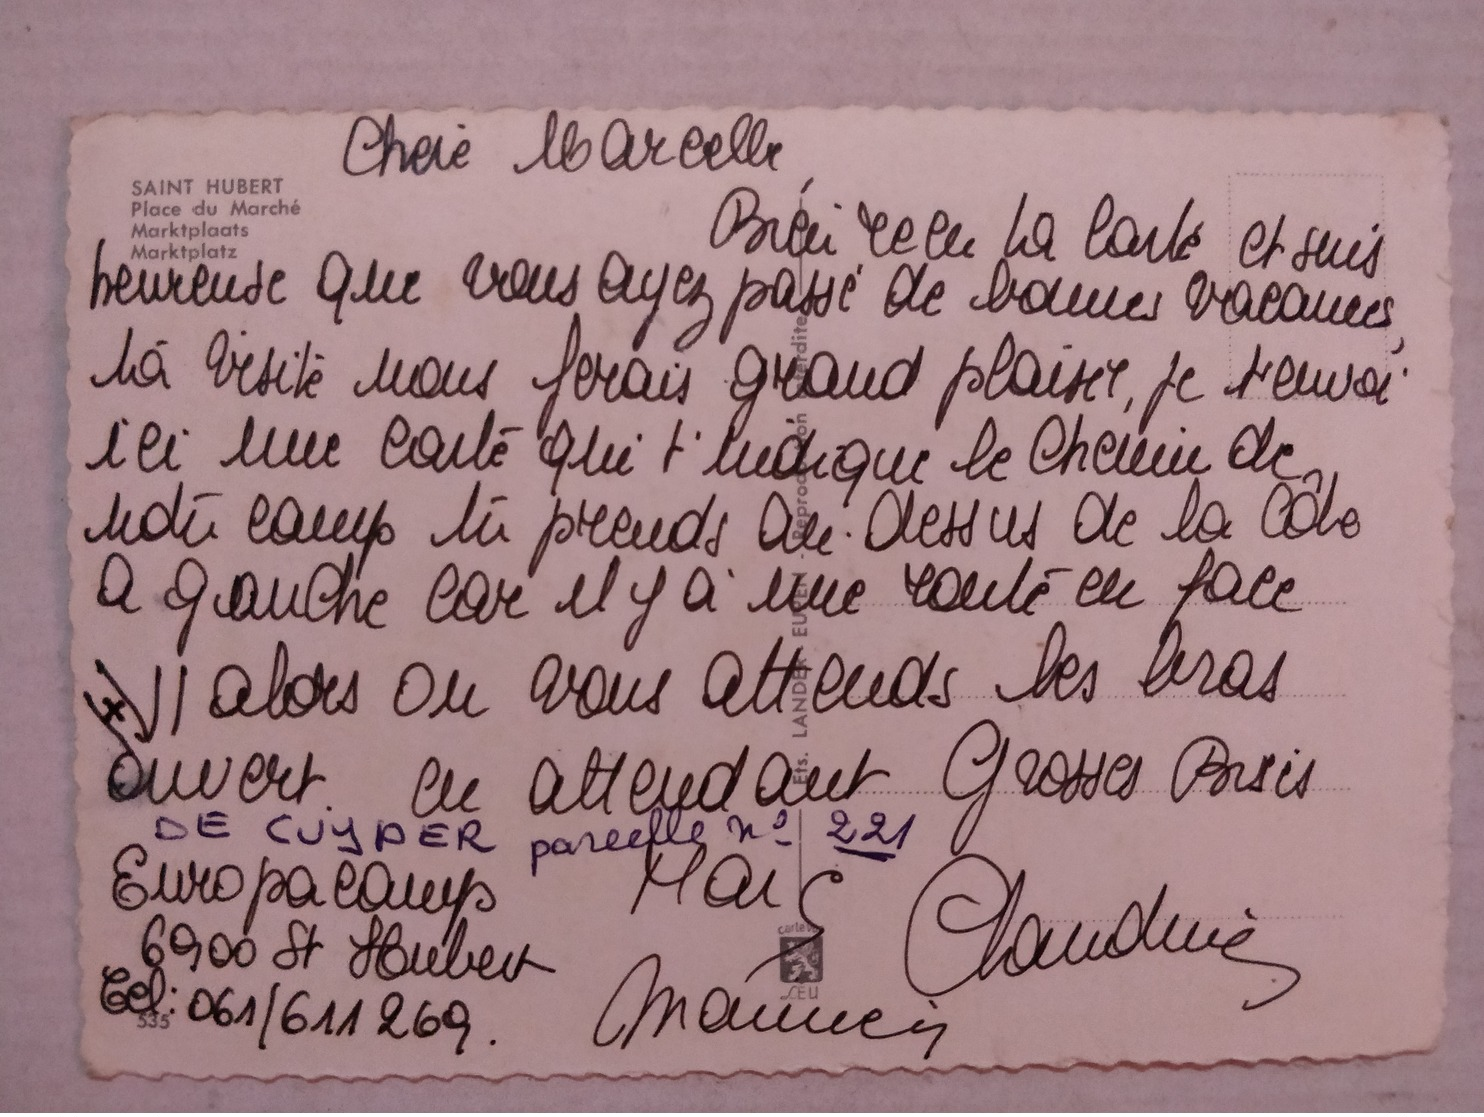 Cheie Marcelle,
SAINT HUBERT
Place du Marché
Marktplaats
Marktplatz
Bien reçu ta carte et suis
heureuse que vous ayez passé de bonnes vacances,
ta visite nous ferais grand plaisir, je t'envoi
ici une carte qui t'indique le chemin de
notre camp tu prends au-dessus de la Côte
a gauche car il y a une route en face
alors on vous attends les bras
ouvert. en attendant Grosses Bises
DE CUYPER parcelle nº 221
Europacamp
6900 St Hubert
Tel: 061/611269.
535
Claudine
Ets. LANDER - EUPEN - Reproduction interdite